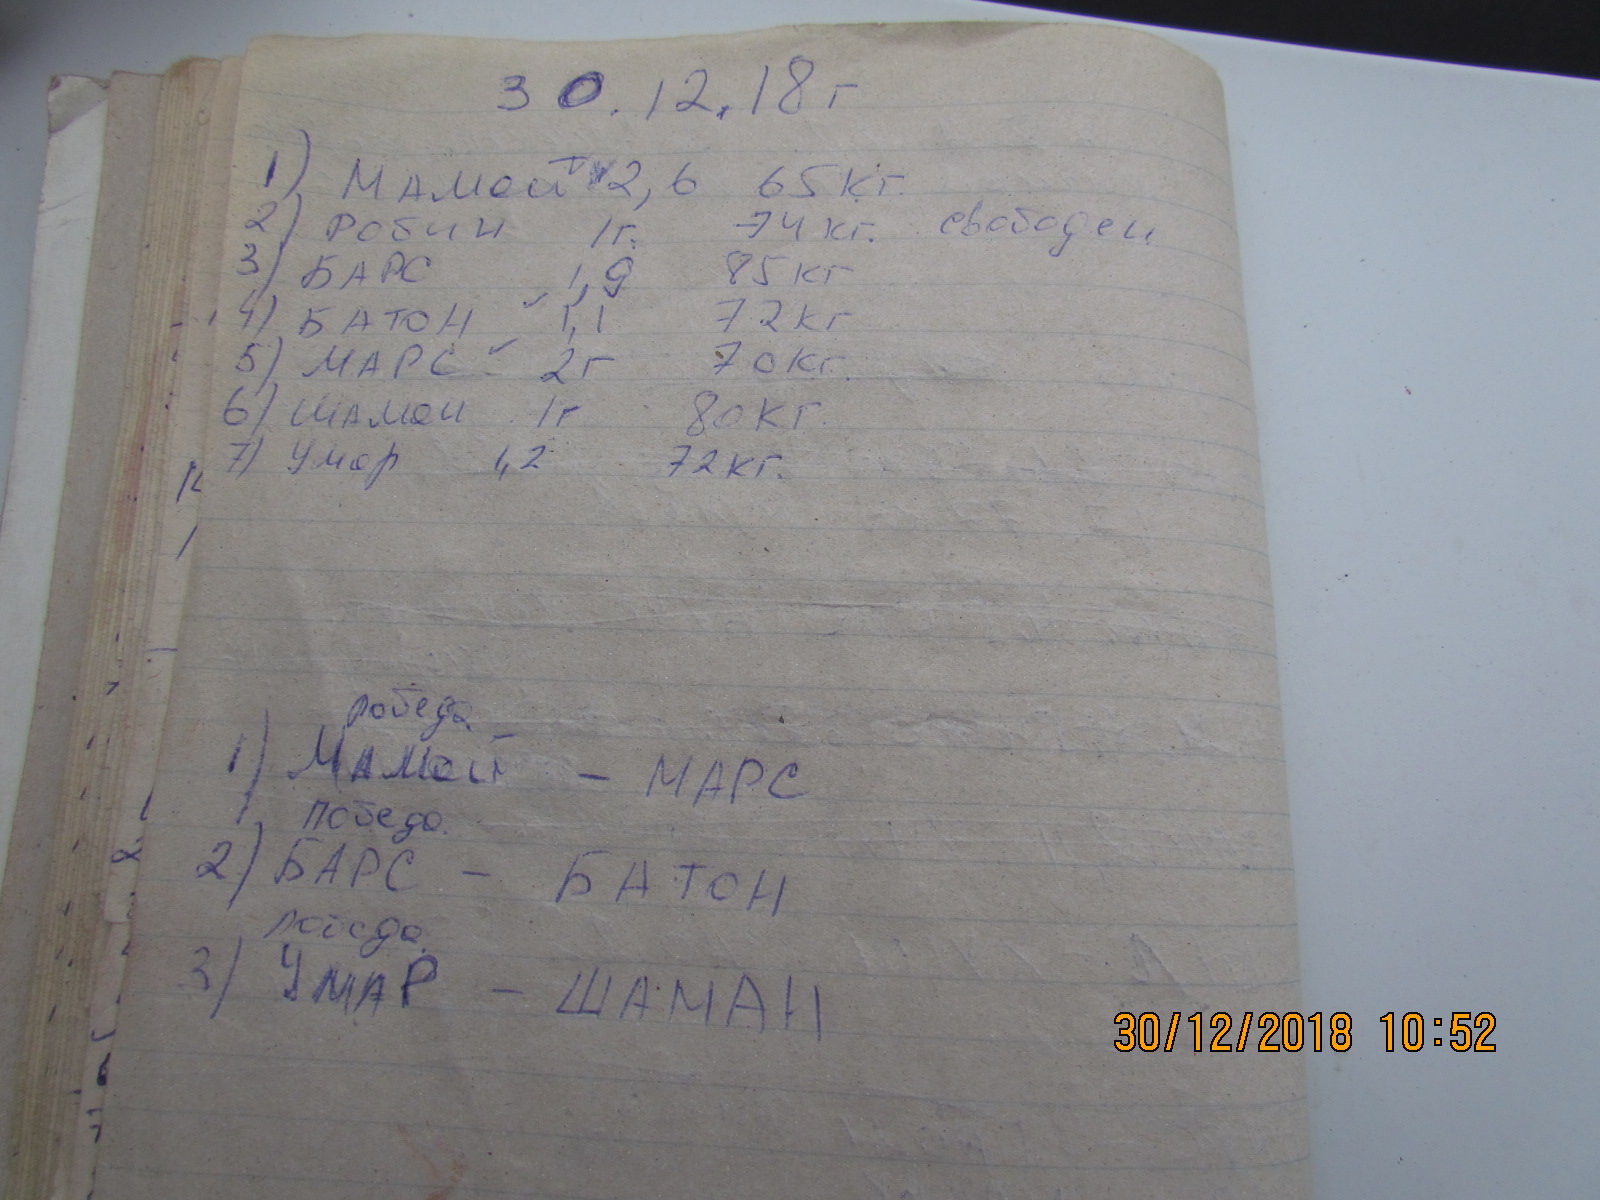 30.12.18г
1) МАМОЙ 2,6 65кг.
2) РОБИН 1г. 74кг. свободен
3) БАРС 1,9 85кг
4) БАТОН 1,1 72кг
5) МАРС 2г 70кг.
6) ШАМАН 1г 80кг.
7) Умар 1,2 72кг.
победа
1) МАМОЙ – МАРС
победа.
2) БАРС – БАТОН
победа.
3) УМАР – ШАМАН
30/12/2018 10:52